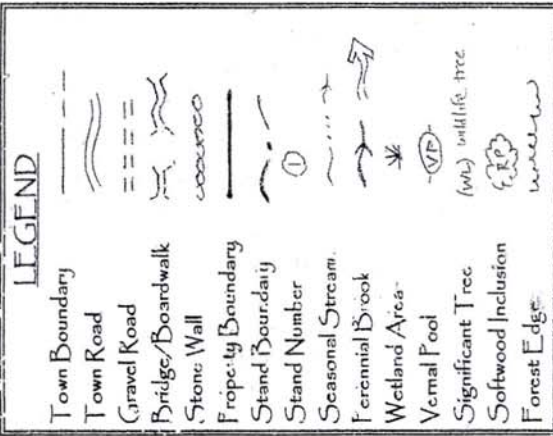 LEGEND
Town Boundary
Town Road
Gravel Road
Bridge/Boardwalk
Stone Wall
Property Boundary
Stand Boundary
Stand Number 1
Seasonal Stream
Perennial Brook
Wetland Area
Vernal Pool VP
Significant Tree (WL) wildlife tree
Softwood Inclusion RP
Forest Edge